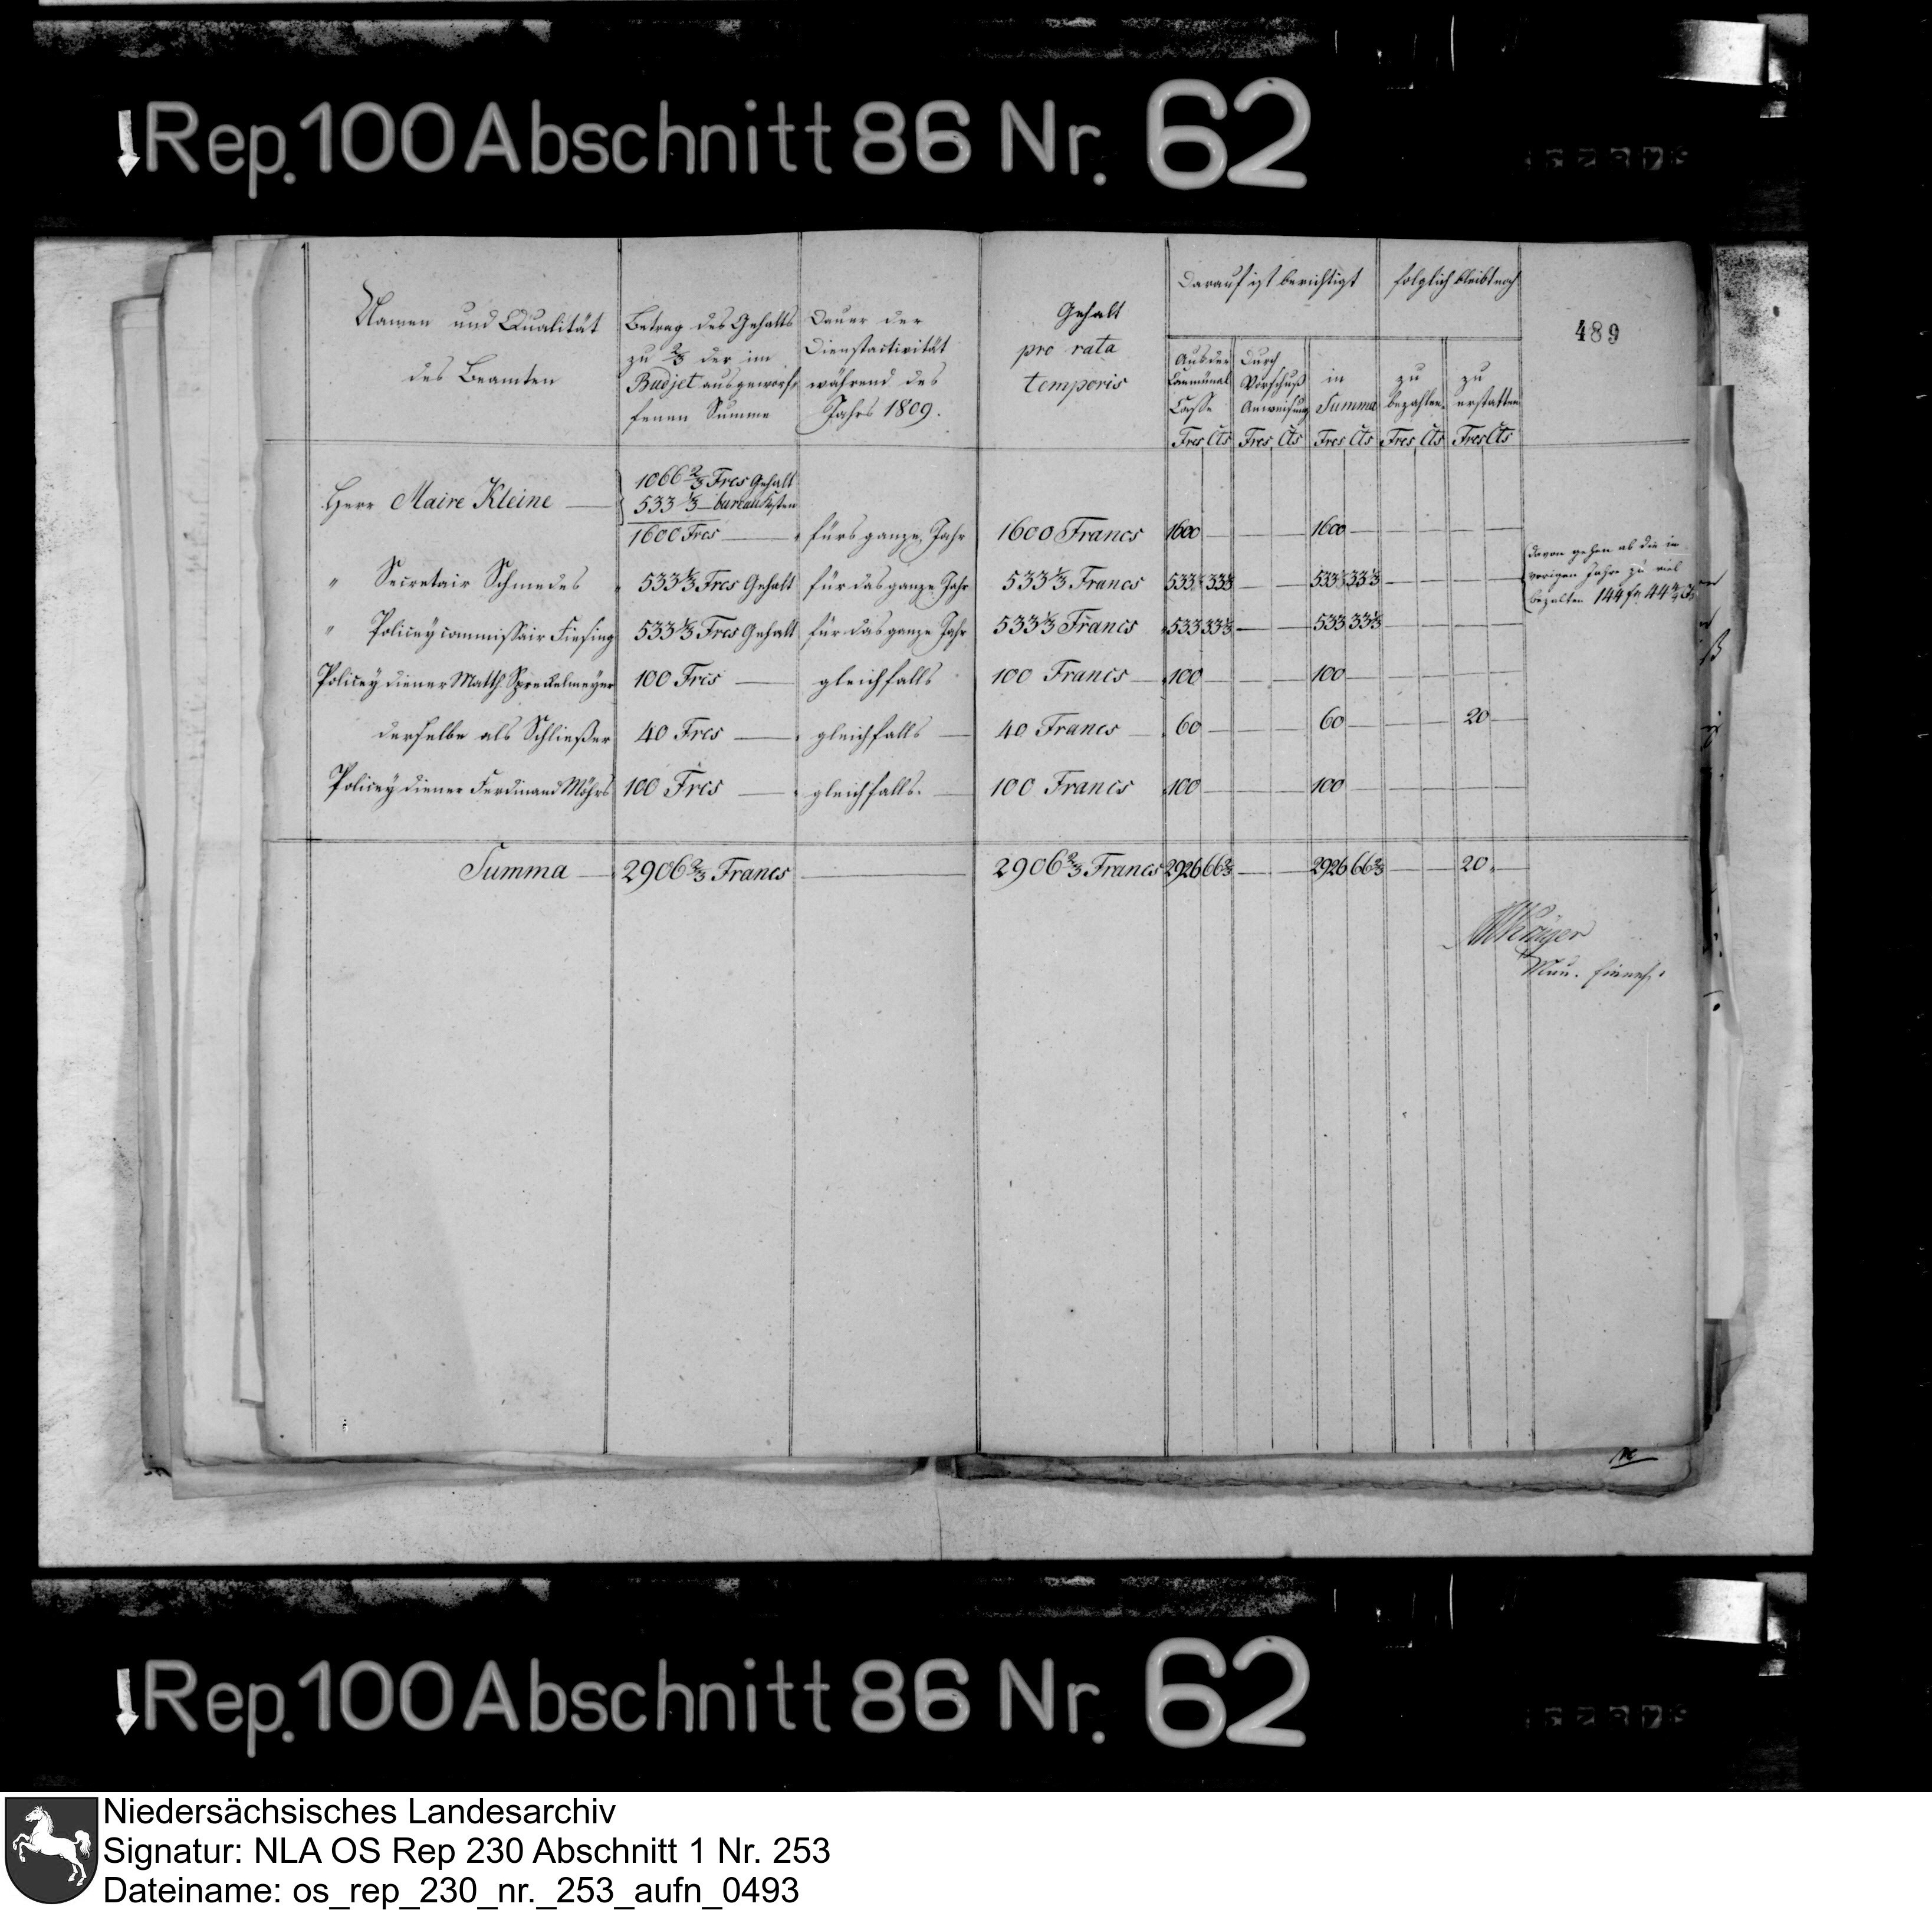 Rep. 100 Abschnitt 86 Nr. 62
489
Namen und Qualität
des Beamten
Betrag des Gehalts
zu 2/3 der im
Budjet ausgeworf-
fenen Summe
Dauer der
Dienstactivität
während des
Jahrs 1809.
Gehalt
pro rata
temporis
Darauf ist berichtigt
folglich bleibt noch
Aus der
Communal
Casse
Durch
Vorschuß
Anweisung
in
Summa
zu
bezahlen
zu
erstatten
Frcs Cts Frcs Cts Frcs Cts Frcs Cts Frcs Cts
Herr Maire Kleine
1066 2/3 Frcs Gehalt
533 1/3 – bureau Kosten
1600 Frcs fürs ganze Jahr 1600 Francs 1600 1600
" Secretair Schmedes 533 1/3 Frcs Gehalt für das ganze Jahr 533 1/3 Francs 533 33 1/3 533 33 1/3
davon gehen ab die im
vorigen Jahre zu viel
bezalten 144 fr 44
" Policeycommissair Fiesing 533 1/3 Frcs Gehalt für das ganze Jahr 533 1/3 Francs 533 33 1/3 533 33 1/3
Policeydiener Matth. Spreckelmeyer 100 Frcs gleichfalls 100 Francs 100 100
derselbe als Schließer 40 Frcs gleichfalls 40 Francs 60 60 20
Policeydiener Ferdinand Möhrs 100 Frcs gleichfalls. 100 Francs 100 100
Summa 2906 2/3 Francs 2906 2/3 Francs 2926 66 2/3 2926 66 2/3 20
Rep. 100 Abschnitt 86 Nr. 62
Niedersächsisches Landesarchiv
Signatur: NLA OS Rep 230 Abschnitt 1 Nr. 253
Dateiname: os_rep_230_nr._253_aufn_0493